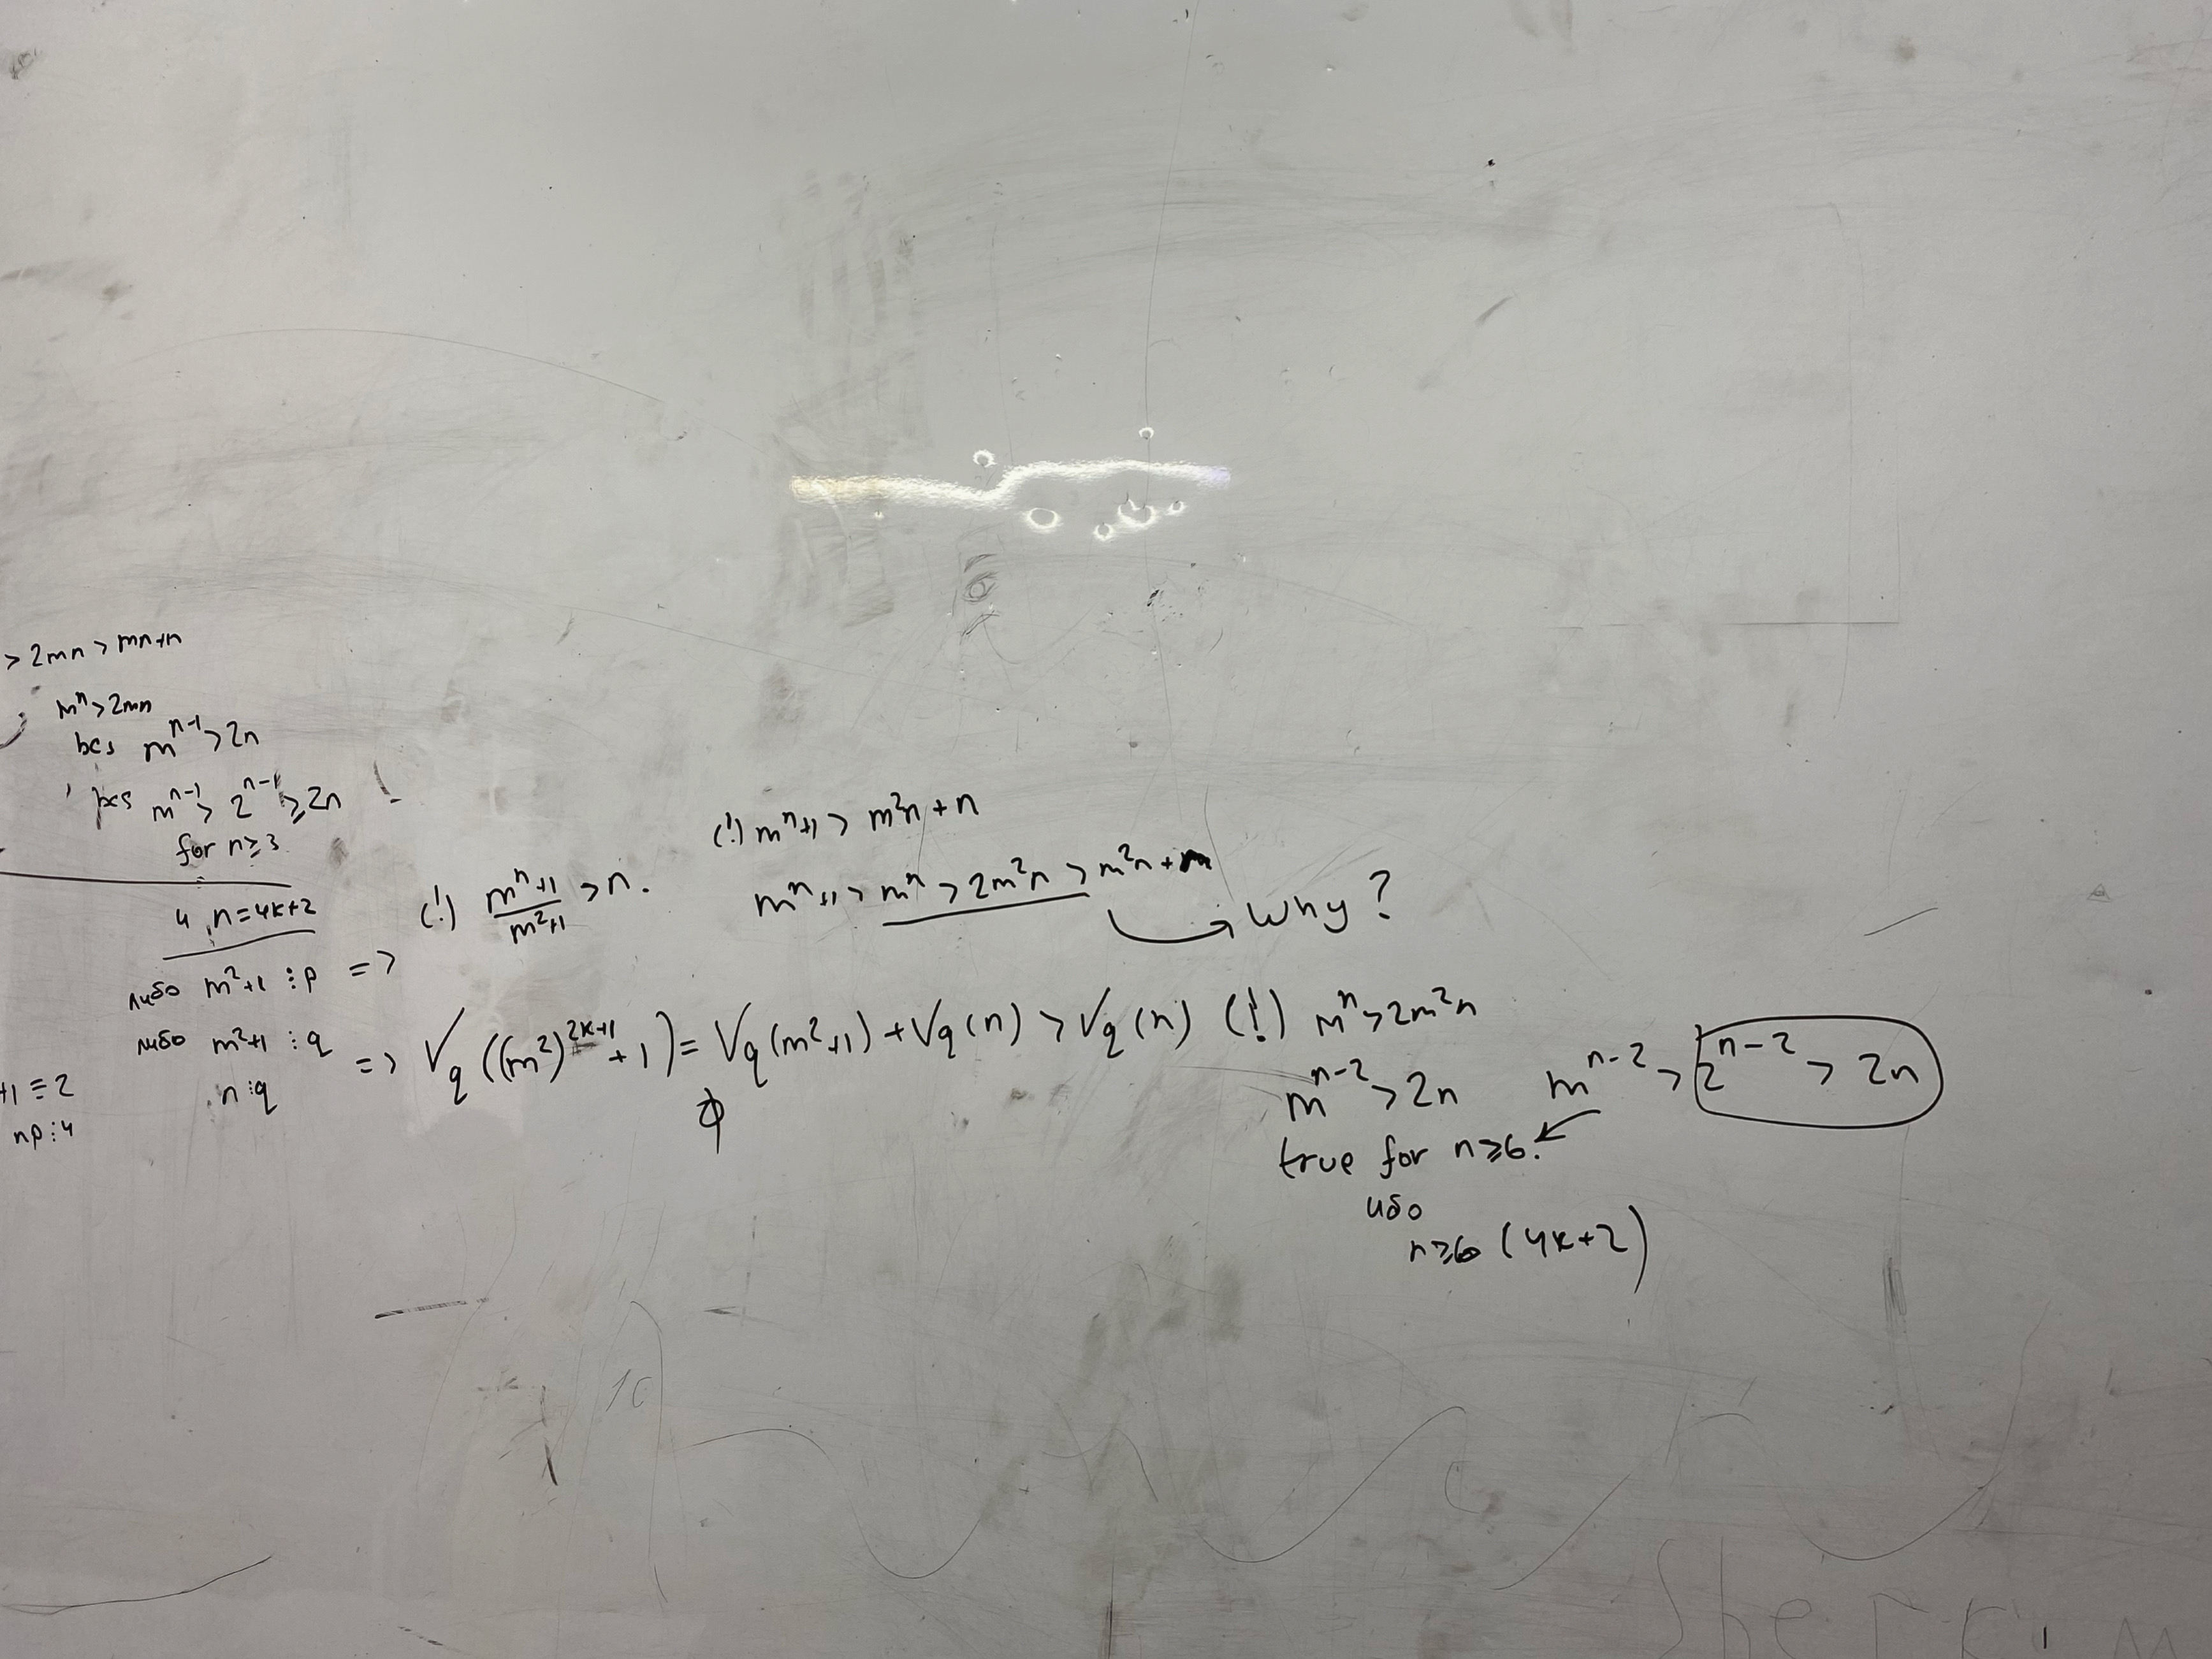 > 2mn > mn+n
mⁿ > 2mn
bcs mⁿ⁻¹ > 2n
bcs mⁿ⁻¹ > 2ⁿ⁻¹ ≥ 2n
for n ≥ 3
и n=4k+2
либо m²+1 ⋮ p =>
либо m²+1 ⋮ q
n ⋮ q
+1 ≡ 2
np ⋮ 4
(!) (mⁿ+1)/(m²+1) > n.
(!) mⁿ+1 > m²n + n
mⁿ+1 > mⁿ > 2m²n > m²n + n
Why?
=> V_q((m²)²ᵏ⁺¹+1) = V_q(m²+1) + V_q(n) > V_q(n) (!) mⁿ > 2m²n
mⁿ⁻² > 2n mⁿ⁻² > 2ⁿ⁻² > 2n
true for n ≥ 6.
ибо
n ≥ 6 (4k+2)
10